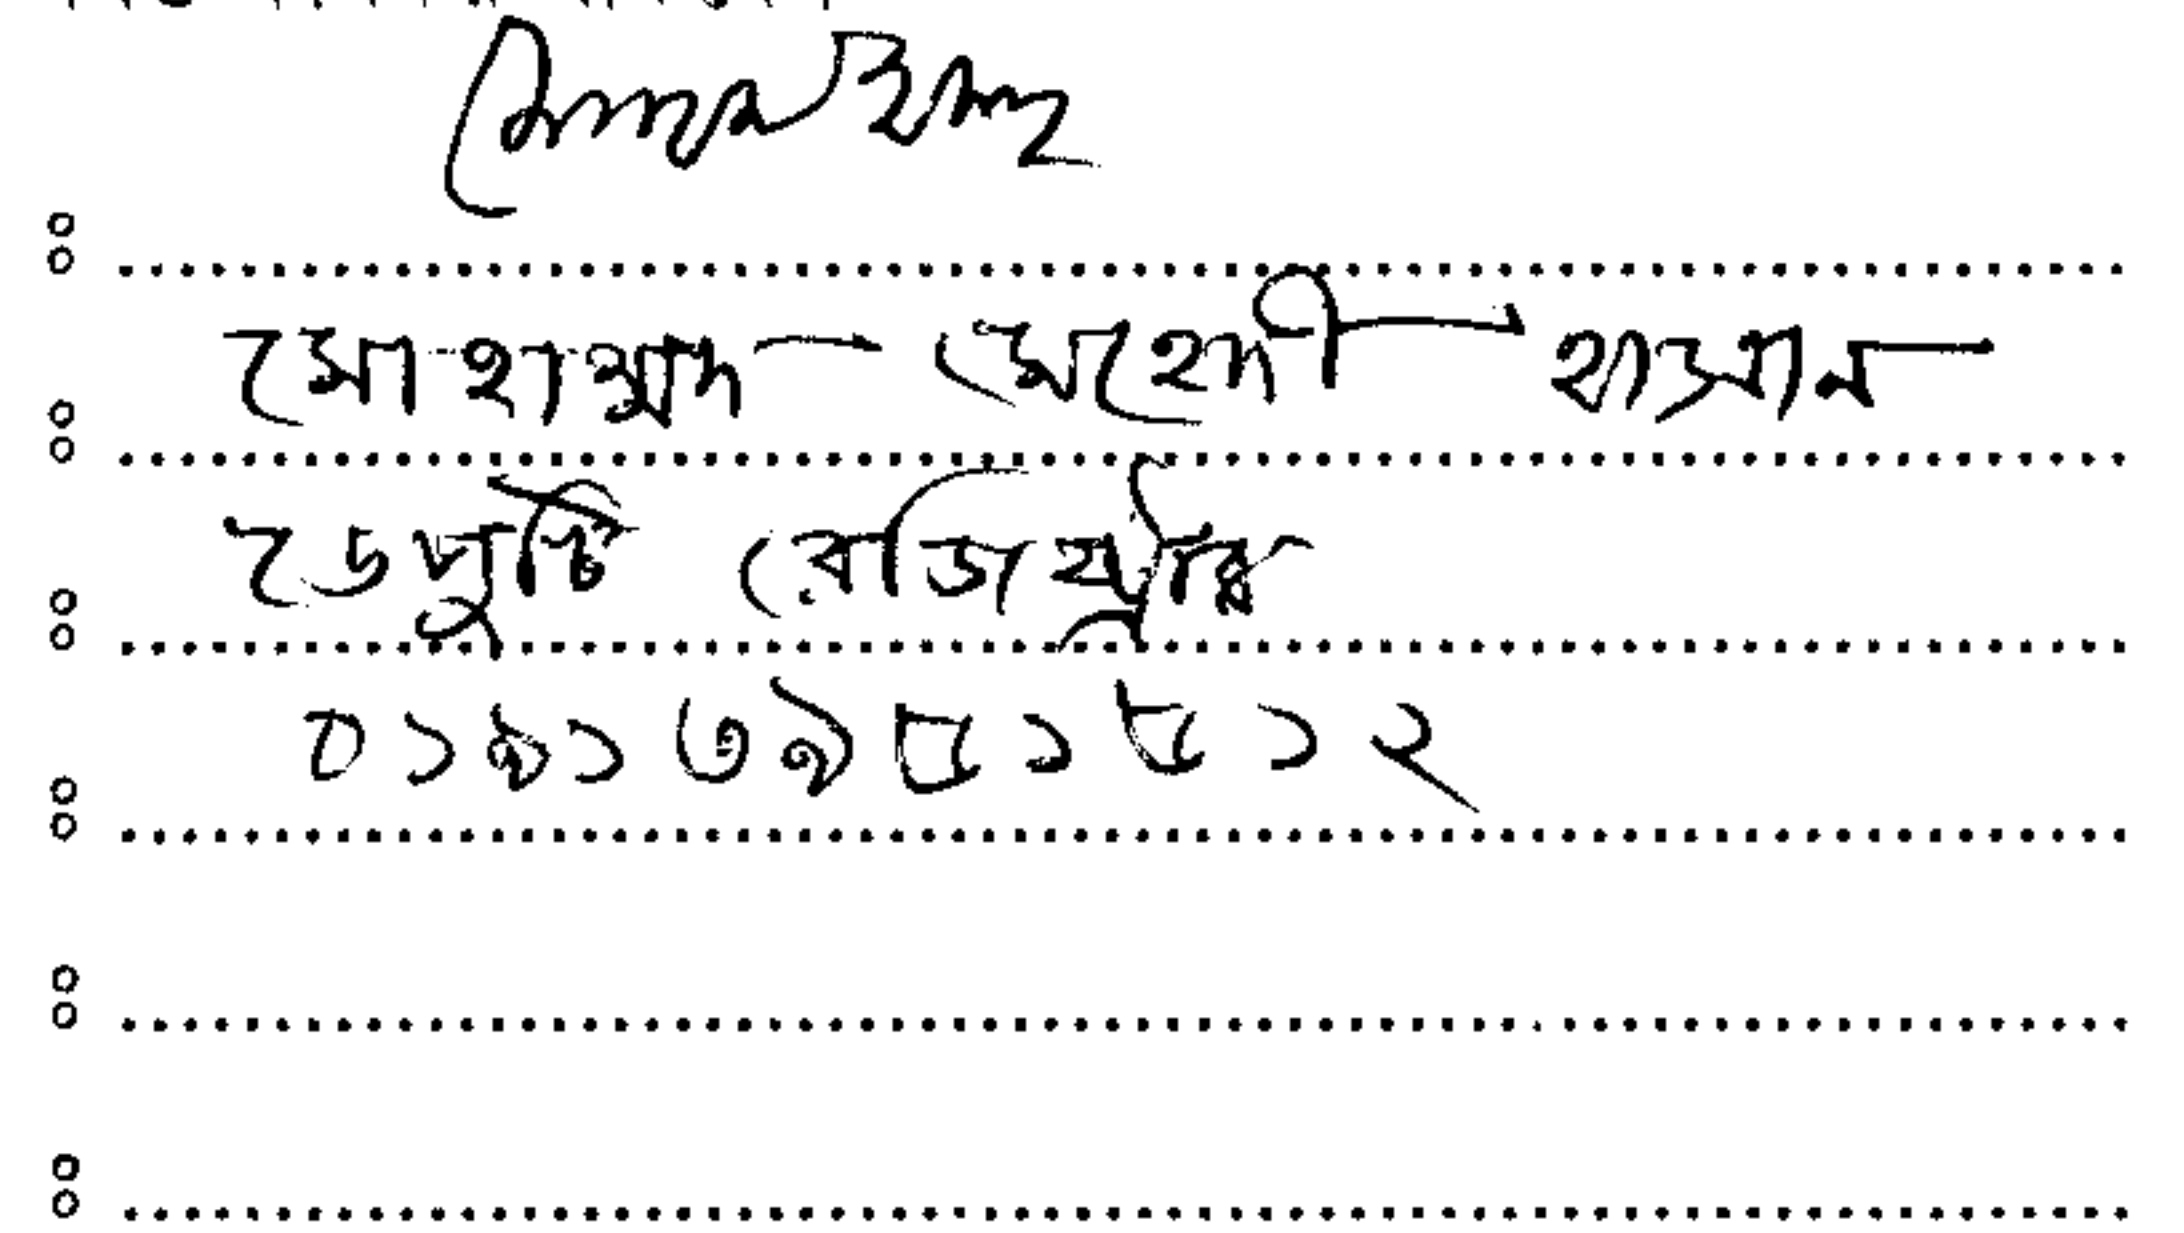 ঃ
ঃ মোহাম্মদ মেহেদী হাসান
ঃ ডেপুটি রেজিস্ট্রার
ঃ ০১৯১৩৯৮১৮১২
ঃ
ঃ